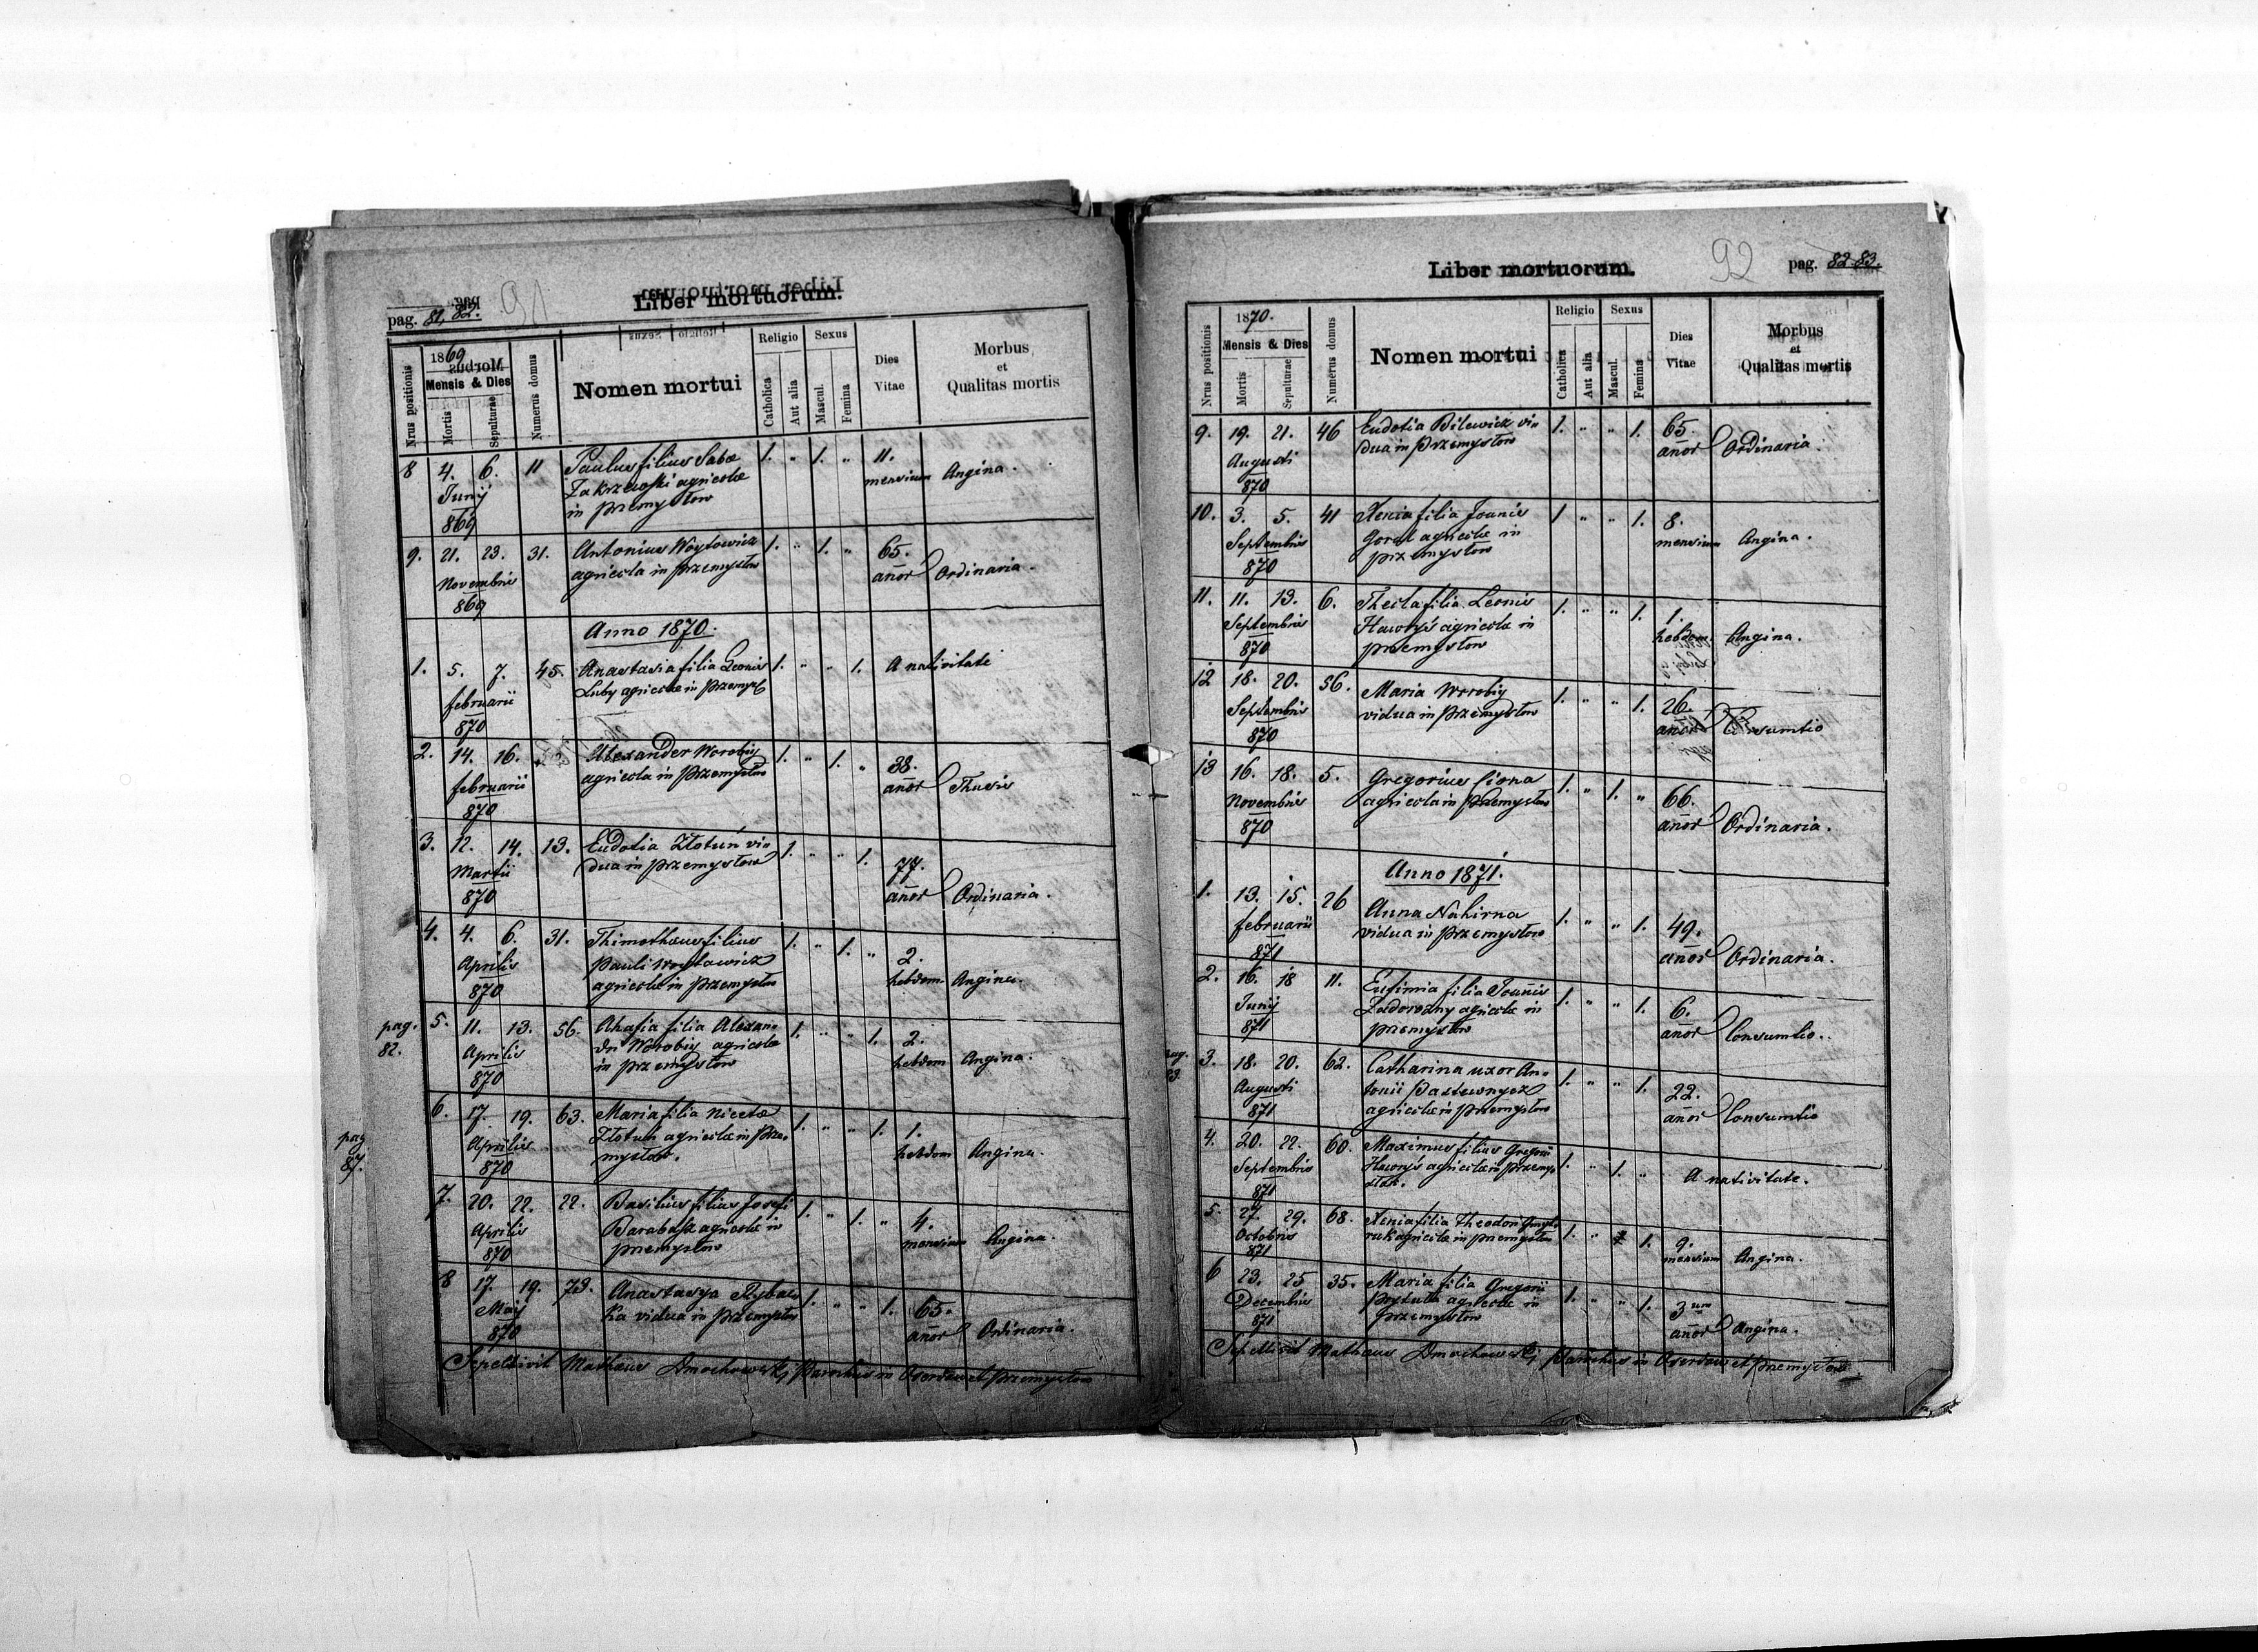 pag. 81, 82.
91
Liber mortuorum.
Nrus positionis
1869
Mensis & Dies
Mortis
Sepulturae
Numerus domus
Nomen mortui
Religio
Catholica
Aut alia
Sexus
Mascul.
Femina
Dies
Vitae
Morbus
et
Qualitas mortis
8 4. 6. 11 Paulus filius Sabæ 1. " 1. " 11.
Junij Zakrzewski agricolæ mensium Angina.
869 in przemysłow
9. 21. 23. 31. Antonius Woytowicz 1. " 1. " 65.
Novembris agricola in przemysłow añor Ordinaria.
869
Anno 1870.
1. 5. 7. 45. Anastasia filia Leonis 1. " " 1. A nativitate
februarii Luby agricolæ in przemysł
870
2. 14. 16. Alexander Worobiy 1. " 1. " 38.
februarii agricola in przemysłow añor Thusis
870
3. 12. 14. 13. Eudotia Złotuń vi= 1. " " 1. 77.
Martii dua in przemysłow añor Ordinaria.
870
4. 4. 6. 31. Thimothæus filius 1. " 1. " 2.
Aprilis Pauli Woytowicz hebdom Angina.
870 agricolæ in przemysłow
pag. 82.
5. 11. 13. 56. Ahafia filia Alexan= 1. " " 1. 2.
Aprilis dri Worobiy agricolæ hebdom Angina.
870 in przemysłow
6. 17. 19. 63. Maria filia Nicetæ 1. " " 1. 1.
Aprilis Złotuń agricolæ in prze= hebdom Angina.
870 mysłow.
pag 87.
7. 20. 22. 22. Basilius filius Josefi 1. " 1. " 4.
Aprilis Barabasz agricolæ in mensium Angina.
870 przemysłow
8 17. 19. 73. Anastasya Rybac= 1. " " 1. 65.
Maij ka vidua in przemysłow añor Ordinaria.
870
Sepelivit Mathæus Dmochowski parochus in Oserdow et przemysłow
Liber mortuorum.
92
pag. 82 83.
Nrus positionis
1870.
Mensis & Dies
Mortis
Sepulturae
Numerus domus
Nomen mortui
Religio
Catholica
Aut alia
Sexus
Mascul.
Femina
Dies
Vitae
Morbus
et
Qualitas mortis
9. 19. 21. 46 Eudotia Bilewicz vi= 1. " " 1. 65.
Augusti dua in przemysłow añor Ordinaria.
870
10. 3. 5. 41 Xenia filia Joanis 1 " " 1. 8.
Septembris Goral agricolæ in mensium Angina.
870 przemysłow
11. 11. 13. 6. Thecla filia Leonis 1. " " 1. 1.
Septembris Haworyś agricolæ in hebdom. Angina.
870 przemysłow
12 18. 20. 56. Maria Worobiy 1. " " 1. 26.
Septembris vidua in przemysłow añor Consumtio
870
13 16. 18. 5. Gregorius Ciona 1. " 1. " 66.
Novembris agricola in przemysłow añor Ordinaria.
870
Anno 1871.
1. 13. 15. 26 Anna Nahirna 1. " " 1. 49.
februarii vidua in przemysłow añor Ordinaria.
871
2. 16. 18 11. Eufimia filia Joañis 1. " " 1. 6.
Junij Zadorozny agricolæ in añor Consumtio.
871 przemysłow
3. 18. 20. 62. Catharina uxor An= 1. " " 1. 22.
Augusti tonii Pastuwnycz añor Consumtio
871 agricolæ in przemysłow
4. 20. 22. 60. Maximus filius Gregorii 1. " 1. " A nativitate.
Septembris Haworyś agricolæ in przemy=
871 słow.
5. 27. 29. 68. Xenia filia Theodori 1. " 1. 9.
Octobris agricolæ in przemysłow mensium Angina.
871
6 23. 25 35. Maria filia Gregorii 1. " " 1. 3um
Decembris Prytuła agricolæ in añor Angina.
871 przemysłow
Sepelivit Mathæus Dmochowski parochus in Oserdow et przemysłow